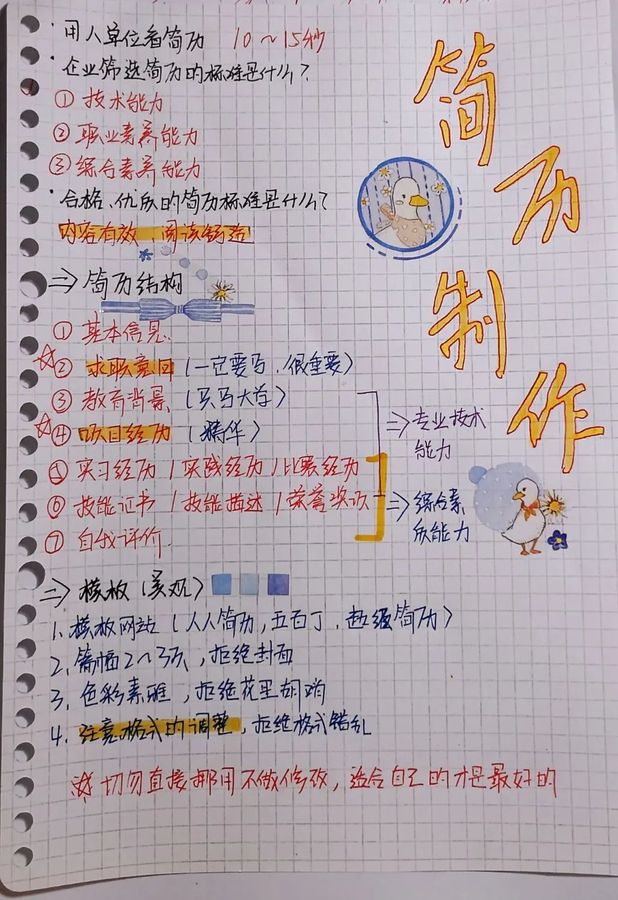 简历制作
·用人单位看简历 10~15秒
·企业筛选简历的标准是什么?
① 技术能力
② 职业素养能力
③ 综合素养能力
·合格、优质的简历标准是什么?
内容有效、阅读舒适
=> 简历结构
① 基本信息
☆② 求职意向(一定要写、很重要)
③ 教育背景(买马大学)
☆④ 项目经历(精华)
⑤ 实习经历/实践经历/比赛经历
⑥ 技能证书/技能描述/荣誉奖项
⑦ 自我评价
=>专业技术
能力
=>综合素
质能力
=> 模板(美观)
1. 模板网站(人人简历,五百丁,超级简历)
2. 篇幅2~3页,拒绝封面
3. 色彩素雅,拒绝花里胡哨
4. 注意格式的调整,拒绝格式错乱
☆切勿直接挪用不做修改,适合自己的才是最好的